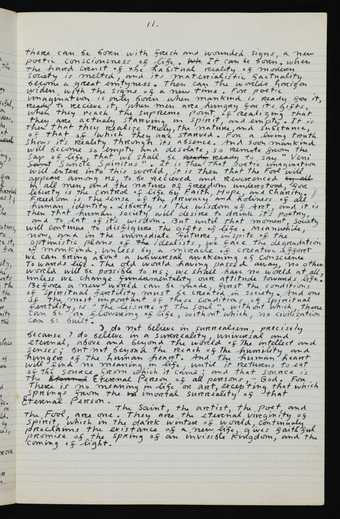 11.
there can be born with fresh and wounded signs, a new
poetic consciousness of life. It can be born, when
the hard crust of the habitual reality of modern
society is melted, and its materialistic factuality
become a great emptyness. Then can the world horizon
widen with the signs of a new time. For poetic
imagination is only born when mankind is ready for it,
ready to receive it, when men are hungry for its gifts,
when they reach the supreme point of realizing that
they are actually starving in spirit, and empty. It is
then that they realize truly the nature, and substance,
of that of which they are starved. For a living truth
shows its reality through its absence. And soon mankind
will become so empty and desolate, so remote from the
joy of life, that we shall be ready to say "Veni
Sancte Spiritus". It is then that poetic imagination
will enter into this world, it is then that the Fool will
appear among us, to be acted and reverenced
in all men, and the nature of freedom understood, give
society is the control of life by Faith, Hope, and Charity.
Freedom is the sense of the Divinity and holiness of all
human identity. Liberty is the wisdom of Art, and it is
then that human society will desire to drink its poetry,
and to eat of its wisdom. But until that moment, society
will continue to disfigure the gifts of life. Meanwhile
now, and in the immediate future, in spite of the
optimistic dreams of the idealists, we face the degradation
of mankind, unless by a miracle of creative effort
we can bring about a universal awakening of conscience
towards life. The old world having passed away, no other
world will be possible to us, we shall have no world at all,
unless we change fundamentally our attitude towards life.
Before a new world can be made, first the conditions
of spiritual fertility must be created in society. And one
of the most important of these conditions, of spiritual
fertility, is the desire of the soul - without which there
can be no flowering of life, without which, no civilization
can be built.
I do not believe in surrealism, precisely
because I do believe in a surreality, universal and
eternal, above and beyond the world of the intellect and
senses; but not beyond the reach of the humility and
hunger of the human heart. And the human heart
will find no meaning in life, until it returns to eat
of the source from which it came; and that source is
the Eternal Person of all persons, - God. For
there is no meaning in life or art, excepting that which
springs from the immortal surreality of that
Eternal Person.
The Saint, the artist, the poet, and
the Fool, are one. They are the eternal virginity of
spirit, which in the dark winter of the world, continually
proclaims the existence of a new life, gives faithful
promise of the spring of an invisible Kingdom, and the
coming of light.